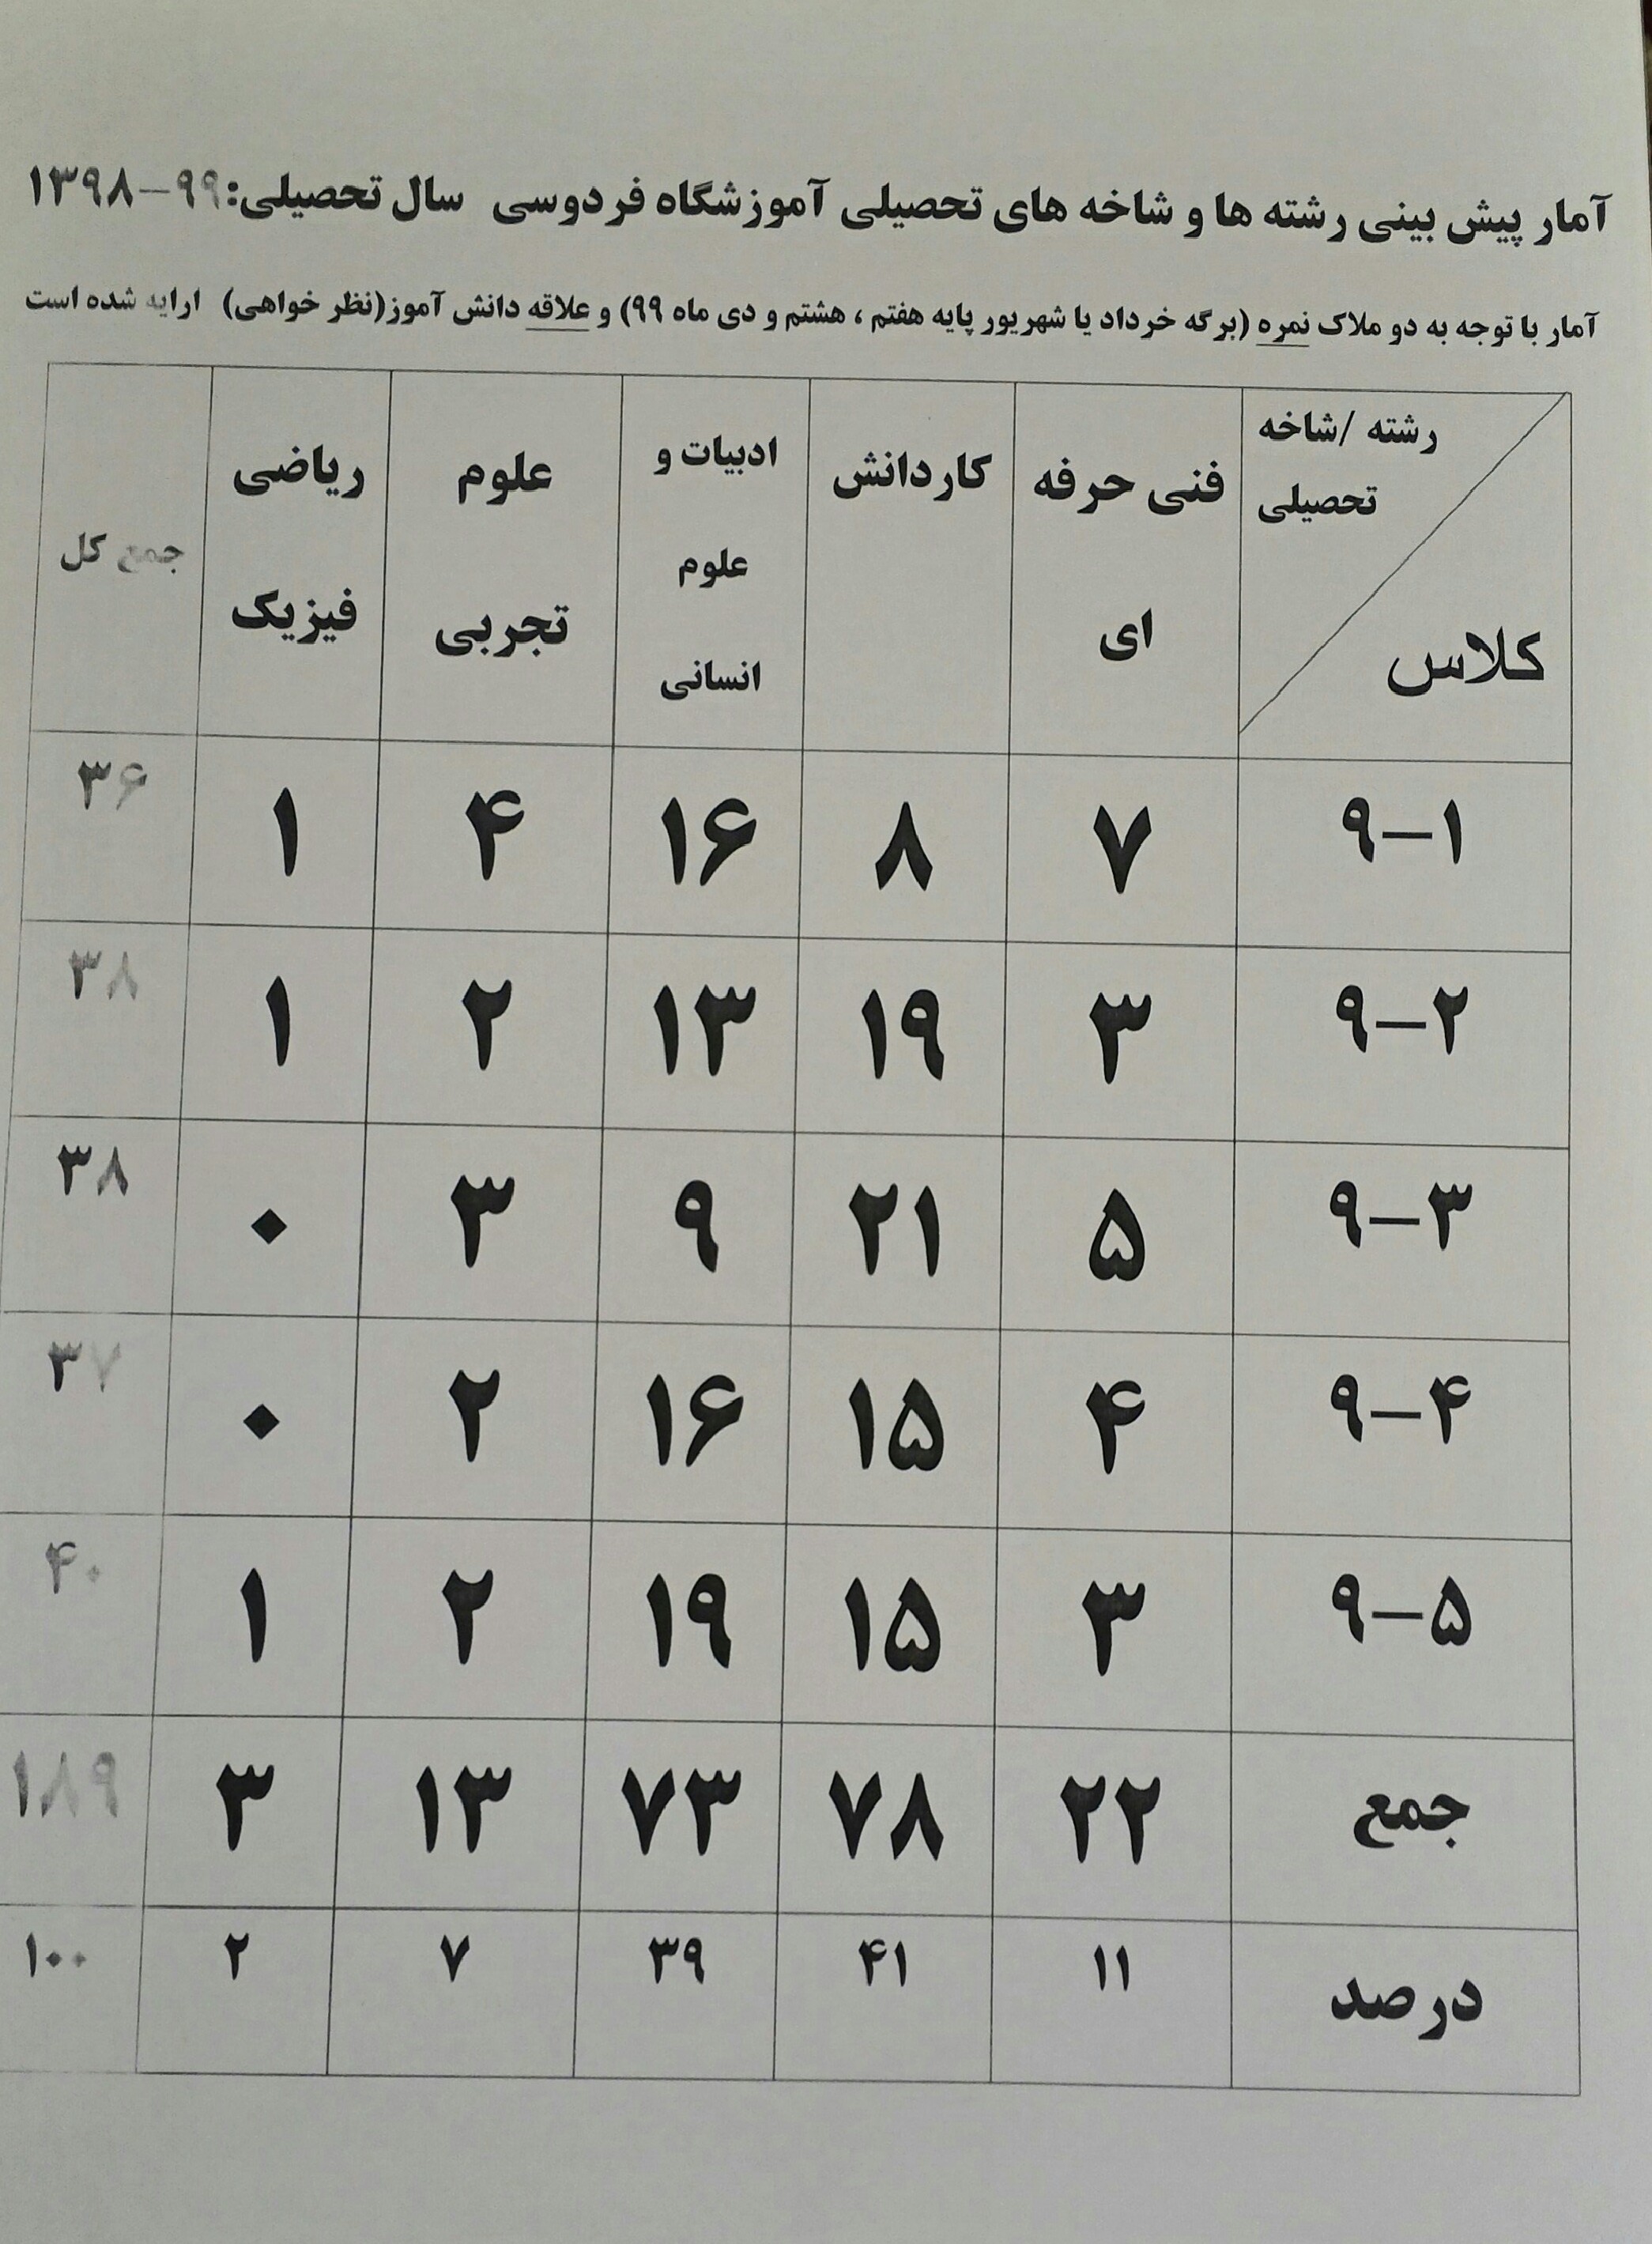 آمار پیش بینی رشته ها و شاخه های تحصیلی آموزشگاه فردوسی سال تحصیلی:۹۹-۱۳۹۸
آمار با توجه به دو ملاک نمره (برگه خرداد یا شهریور پایه هفتم ، هشتم و دی ماه ۹۹) و علاقه دانش آموز(نظر خواهی) ارایه شده است
رشته /شاخه تحصیلی کلاس فنی حرفه ای کاردانش ادبیات و علوم انسانی علوم تجربی ریاضی فیزیک جمع کل
۹-۱ ۷ ۸ ۱۶ ۴ ۱ ۳۶
۹-۲ ۳ ۱۹ ۱۳ ۲ ۱ ۳۸
۹-۳ ۵ ۲۱ ۹ ۳ ۰ ۳۸
۹-۴ ۴ ۱۵ ۱۶ ۲ ۰ ۳۷
۹-۵ ۳ ۱۵ ۱۹ ۲ ۱ ۴۰
جمع ۲۲ ۷۸ ۷۳ ۱۳ ۳ ۱۸۹
درصد ۱۱ ۴۱ ۳۹ ۷ ۲ ۱۰۰